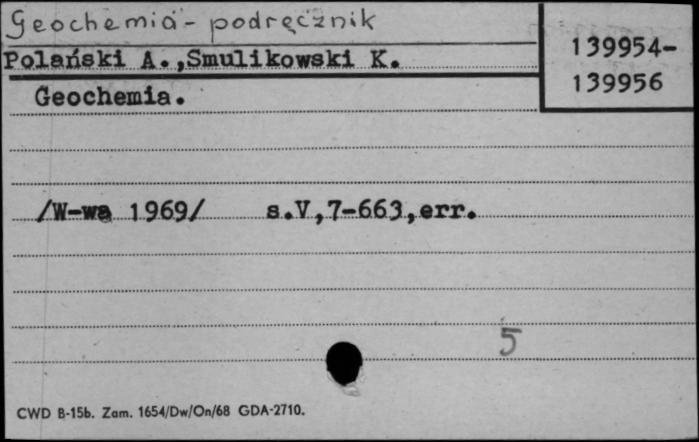 Geochemia - podręcznik
139954-
139956
Polański A.,Smulikowski K.
Geochemia.
/W-wa 1969/ s.V,7-663,err.
5
CWD B-15b. Zam. 1654/Dw/On/68 GDA-2710.